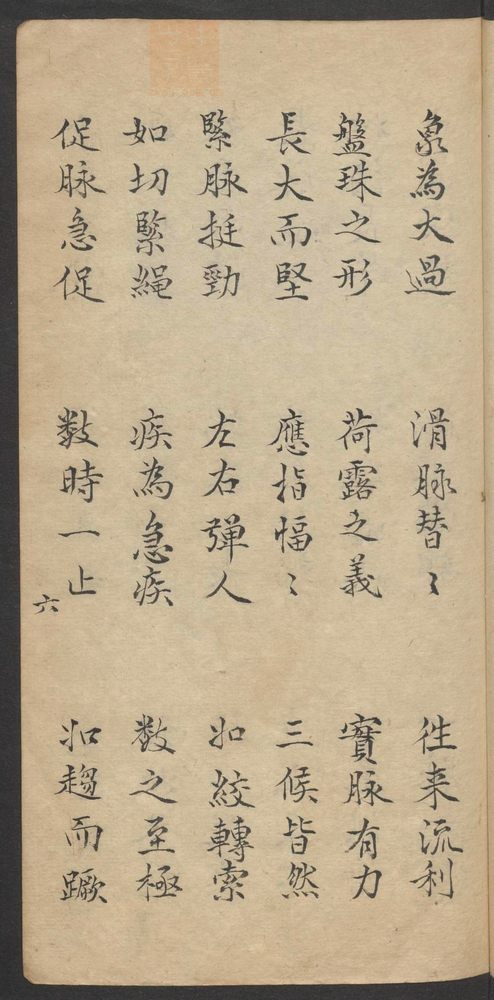 象為大過 滑脉替〻 徃来流利
盤珠之形 荷露之義 實脉有力
長大而堅 應指幅〻 三候皆然
緊脉挺勁 左右彈人 如絞轉索
如切緊繩 疾為急疾 数之至極
促脉急促 数時一止 如趨而蹶
六